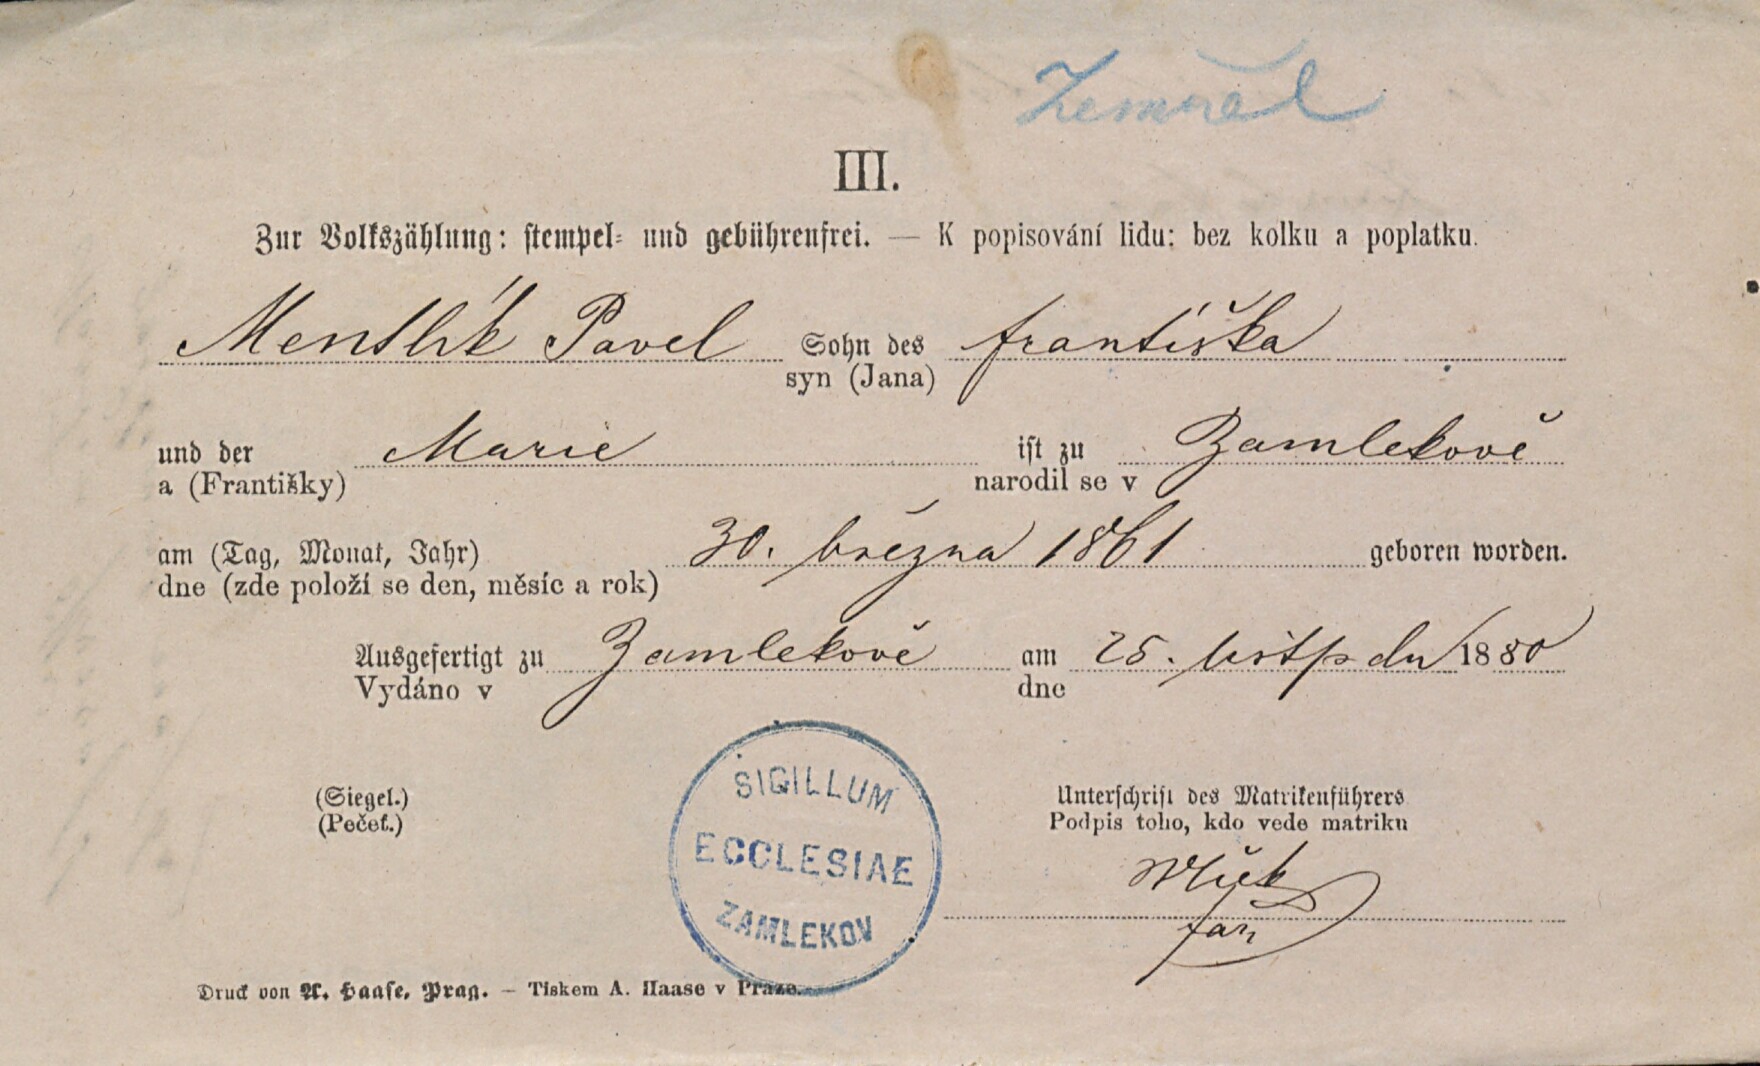 Zemřel
III.
Zur Volkszählung: stempel- und gebührenfrei. — K popisování lidu: bez kolku a poplatku.
Mentlík Pavel Sohn des Františka
syn (Jana)
und der Marie ist zu Zamlekově
a (Františky) narodil se v
am (Tag, Monat, Jahr) 30. března 1861 geboren worden.
dne (zde položí se den, měsíc a rok)
Ausgefertigt zu Zamlekově am 25. listpdu 1880
Vydáno v dne
SIGILLUM
ECCLESIAE
ZAMLEKOV
(Siegel.)
(Pečeť.)
Unterschrift des Matrikenführers
Podpis toho, kdo vede matriku
Vlček
far.
Druck von A. Haase, Prag. — Tiskem A. Haase v Praze.